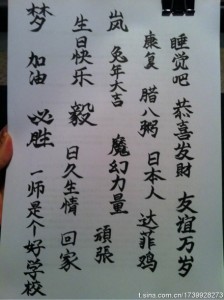 睡觉吧
恭喜發財
友谊万岁
康复
腊八粥
日本人
达菲鸡
岚
兔年大吉
魔幻力量
頑張
生日快乐
毅
日久生情
回家
梦
加油
必胜
一师是个好学校
t.sina.com.cn/1738928273